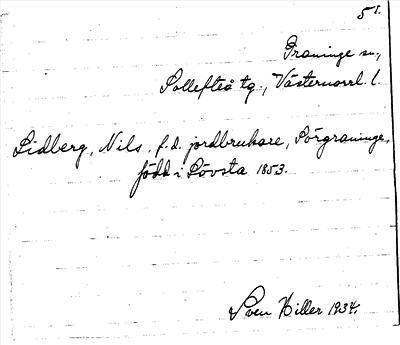 5 s.
Graninge sn.,
Sollefteå tg., Västernorrl. l.
Lidberg, Nils, f.d. jordbrukare, Sörgraninge,
född i Lövsta 1853.
Sven Hiller 1934.